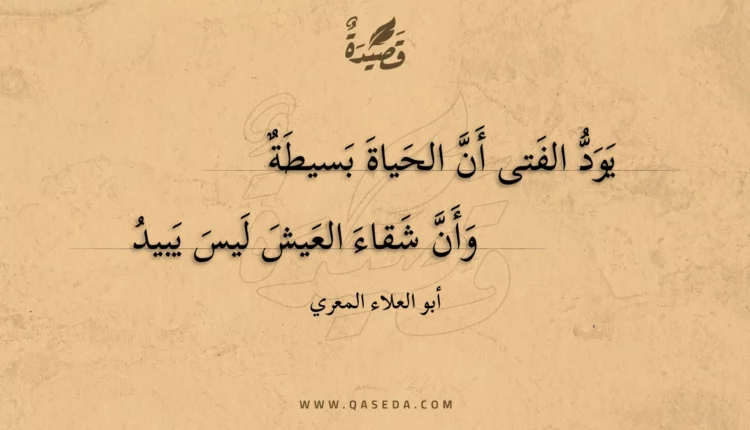 قَصِيدَةٌ
يَوَدُّ الفَتى أَنَّ الحَياةَ بَسيطَةٌ
وَأَنَّ شَقاءَ العَيشَ لَيسَ يَبيدُ
أبو العلاء المعري
WWW.QASEDA.COM